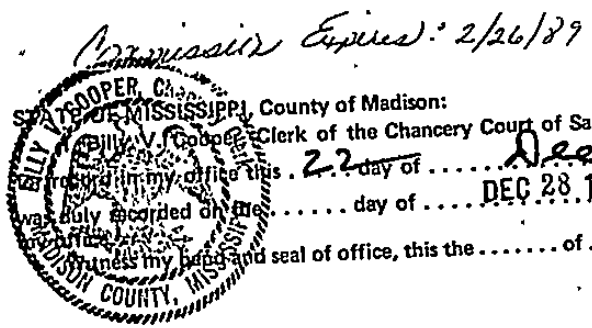 Commission Expires: 2/26/89
STATE OF MISSISSIPPI, County of Madison:
I, Billy V. Cooper, Clerk of the Chancery Court of Sa
record in my office this . 22 . day of ...... Dec
was duly recorded on the ...... day of .... DEC 28 1
my office.
Witness my hand and seal of office, this the ....... of .
BILLY V. COOPER, Chancery Clerk
MADISON COUNTY, MISSISSIPPI